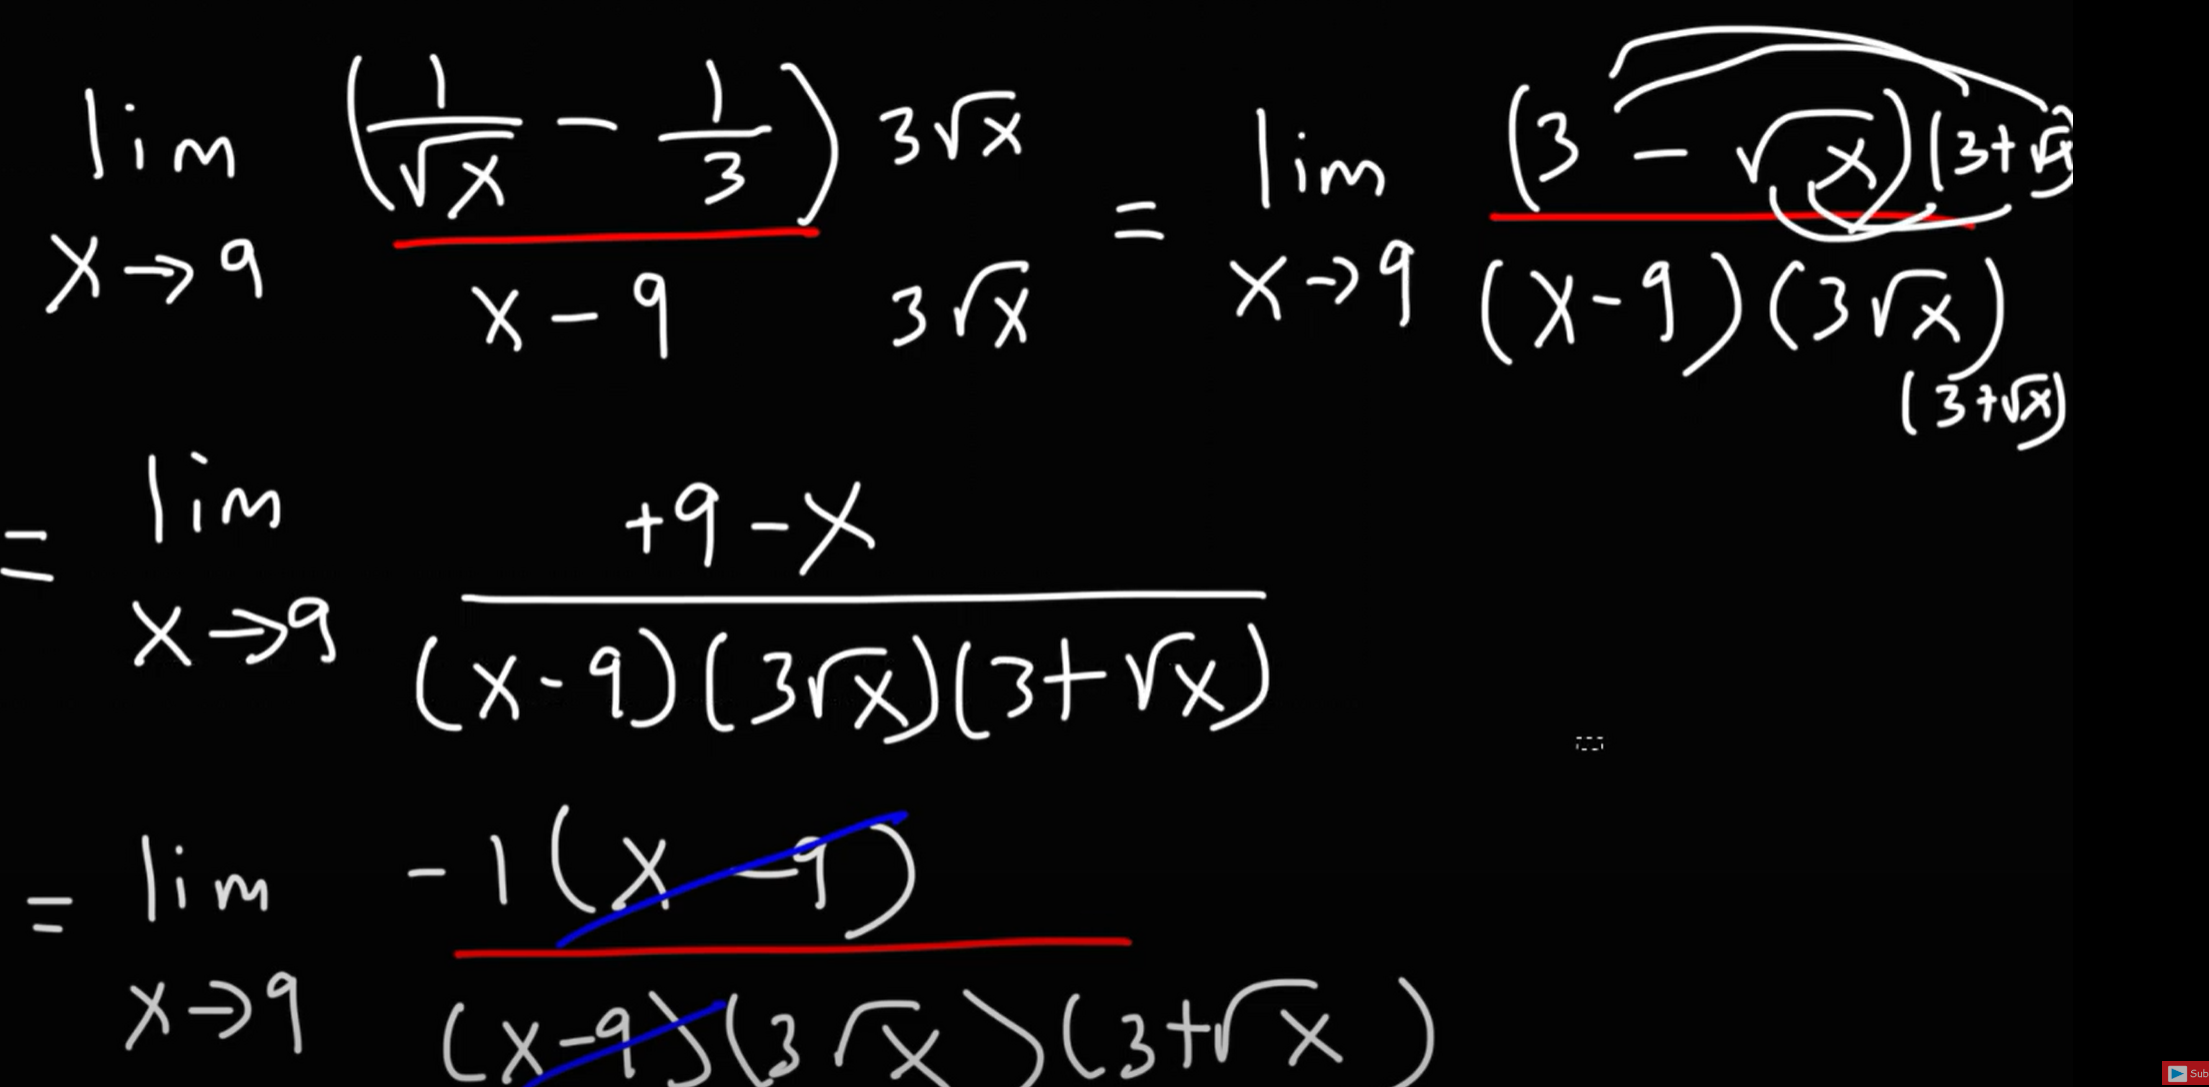 lim x→9 (1/√x − 1/3) 3√x / x − 9 3√x = lim x→9 (3 − √x)(3+√x) / (x−9)(3√x)(3+√x)
= lim x→9 +9−x / (x−9)(3√x)(3+√x)
= lim x→9 −1(x−9) / (x−9)(3√x)(3+√x)
Sub